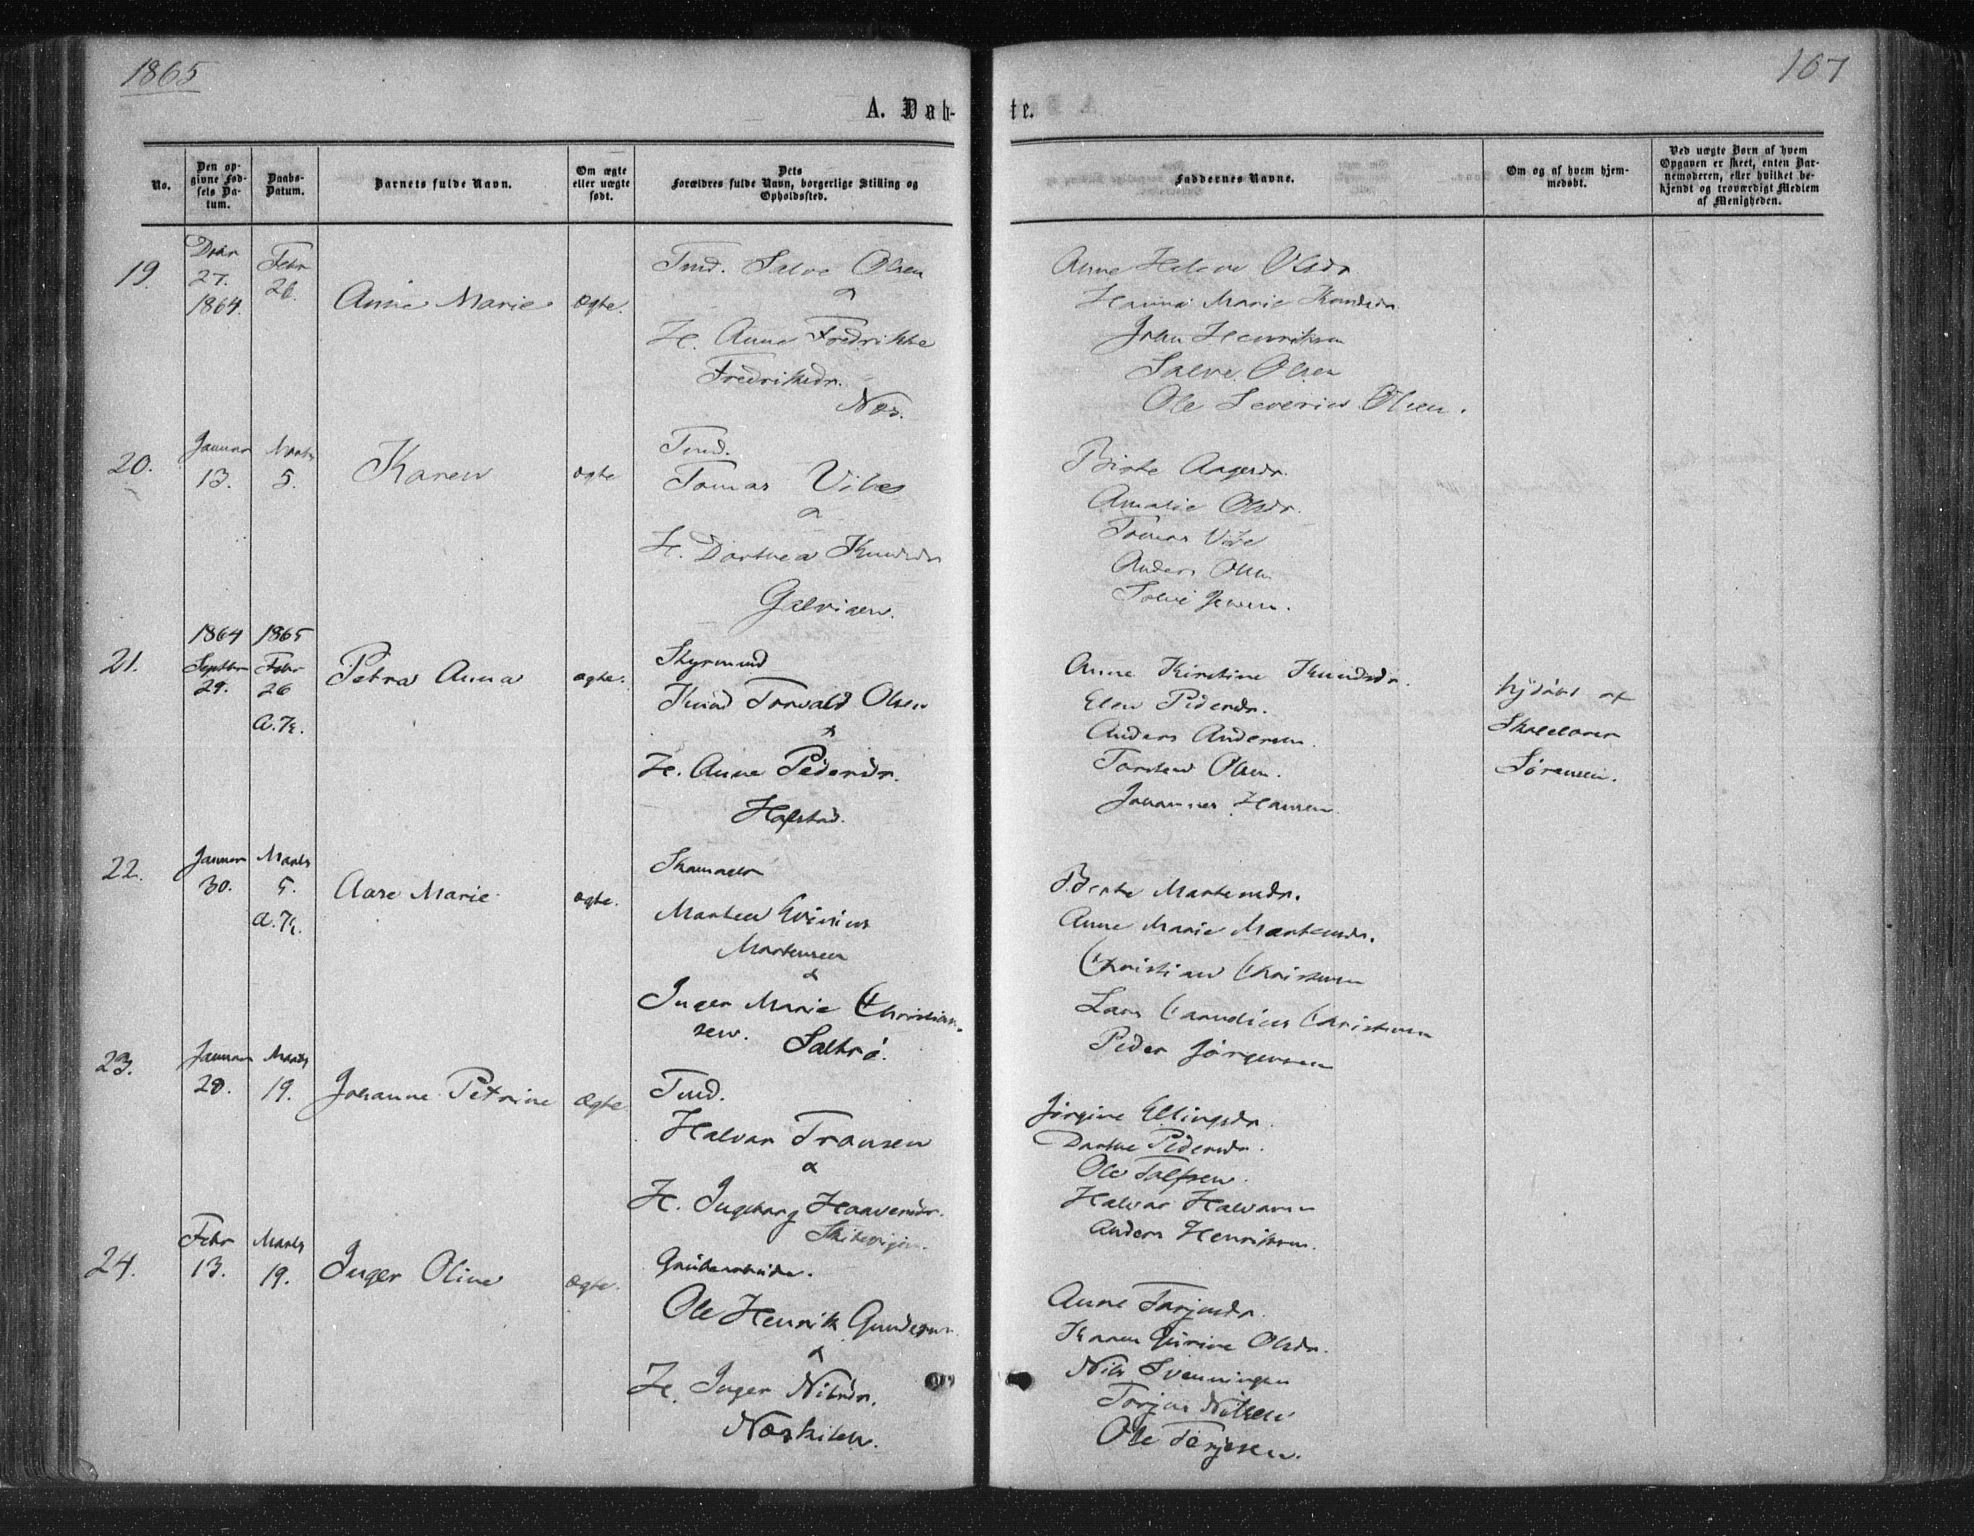 1865
107
A. Døb-
te.
No.
Den op-
givne Fød-
sels Da-
tum.
Daabs-
Datum.
Barnets fulde Navn.
Om ægte
eller uægte
født.
Dets
Forældres fulde Navn, borgerlige Stilling og
Opholdssted.
Faddernes Navne.
Om og af hvem hjem-
medøbt.
Ved uægte Børn af hvem
Opgaven er skeet, enten Bar-
nemoderen, eller hvilket be-
kjendt og troværdigt Medlem
af Menigheden.
19.
Dcbr
27.
1864.
Febr
26.
Anne Marie
ægte.
Tmd. Salve Olsen
&
H. Anne Fredrikke
Fredriksdr.
Næs.
Anne Helene Olsdr
Hanna Marie Knudsdr
John Henriksen
Salve Olsen
Ole Severius Olsen.
20.
Januar
13.
Marts
5.
Karen
ægte
Tmd.
Tomas Vibe
&
H. Dorthea Knudsdr
Galvigen.
Birte Aagesdr.
Amalie Olsdr.
Tomas Vibe
Anders Olsen
Salve Jensen.
21.
1864
Septbr
29.
1865
Febr
26
A.K.
Petra Anna
ægte.
Styrmand
Knud Torvald Olsen
&
H. Anne Pedersdr.
Hafstad.
Anne Kirstine Knudsdr.
Elen Pedersdr.
Anders Andersen.
Torsten Olsen.
Johannes Hansen
hjdøbt af
Skolelærer
Sørensen.
22.
Januar
30.
Marts
5.
A.K.
Aase Marie
ægte.
Skomager
Morten
Mortensen
&
Inger Marie Christian-
sen.
Saltrø.
Berte Mortensdr.
Anne Marie Mortensdr.
Christian Christensen
Lars Christensen
Peder Jørgensen
23.
Januar
28.
Marts
19.
Johanne Petrine
Ægte
Tmd.
Halvar Fransen
&
H. Ingeborg Haavorsdr.
Skibvigen.
Jørgine Ellingsdr.
Dorthe Pedersdr.
Ole Tolfsen.
Halvor Halvorsen
Anders Henriksen.
24.
Febr
13.
Marts
19.
Inger Oline
ægte.
Grubearbeider.
Ole Henrik Gundersen
&
H. Inger Nilsdr.
Næskilen.
Anne Torjusdr.
Karen Gurine Olsdr.
Nils Svenningsen
Torjus Nilsen
Ole Terjesen.